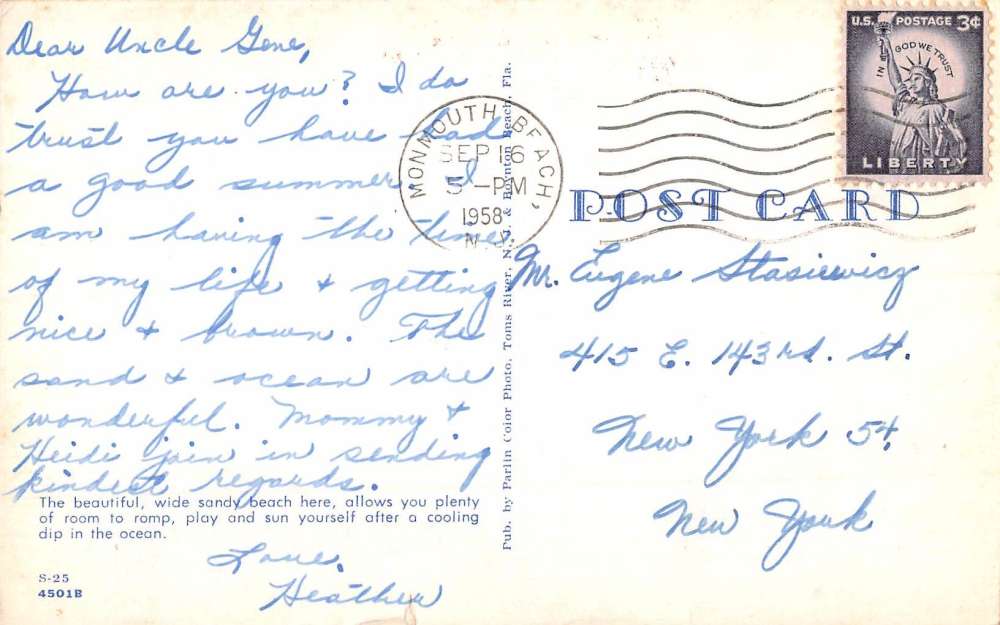 Dear Uncle Gene,
How are you? I do
trust you have had
a good summer. I
am having the time
of my life & getting
nice & brown. The
sand & ocean are
wonderful. Mommy &
Heidi join in sending
kindest regards.
Love,
Heather
The beautiful, wide sandy beach here, allows you plenty
of room to romp, play and sun yourself after a cooling
dip in the ocean.
S-25
4501B
Pub. by Parlin Color Photo, Toms River, N. J. & Boynton Beach, Fla.
MONMOUTH BEACH,
SEP 16
5-PM
1958
N.J.
U.S. POSTAGE 3¢
IN GOD WE TRUST
LIBERTY
POST CARD
Mr. Eugene Stasiewicz
415 E. 143rd. St.
New York 54,
New York